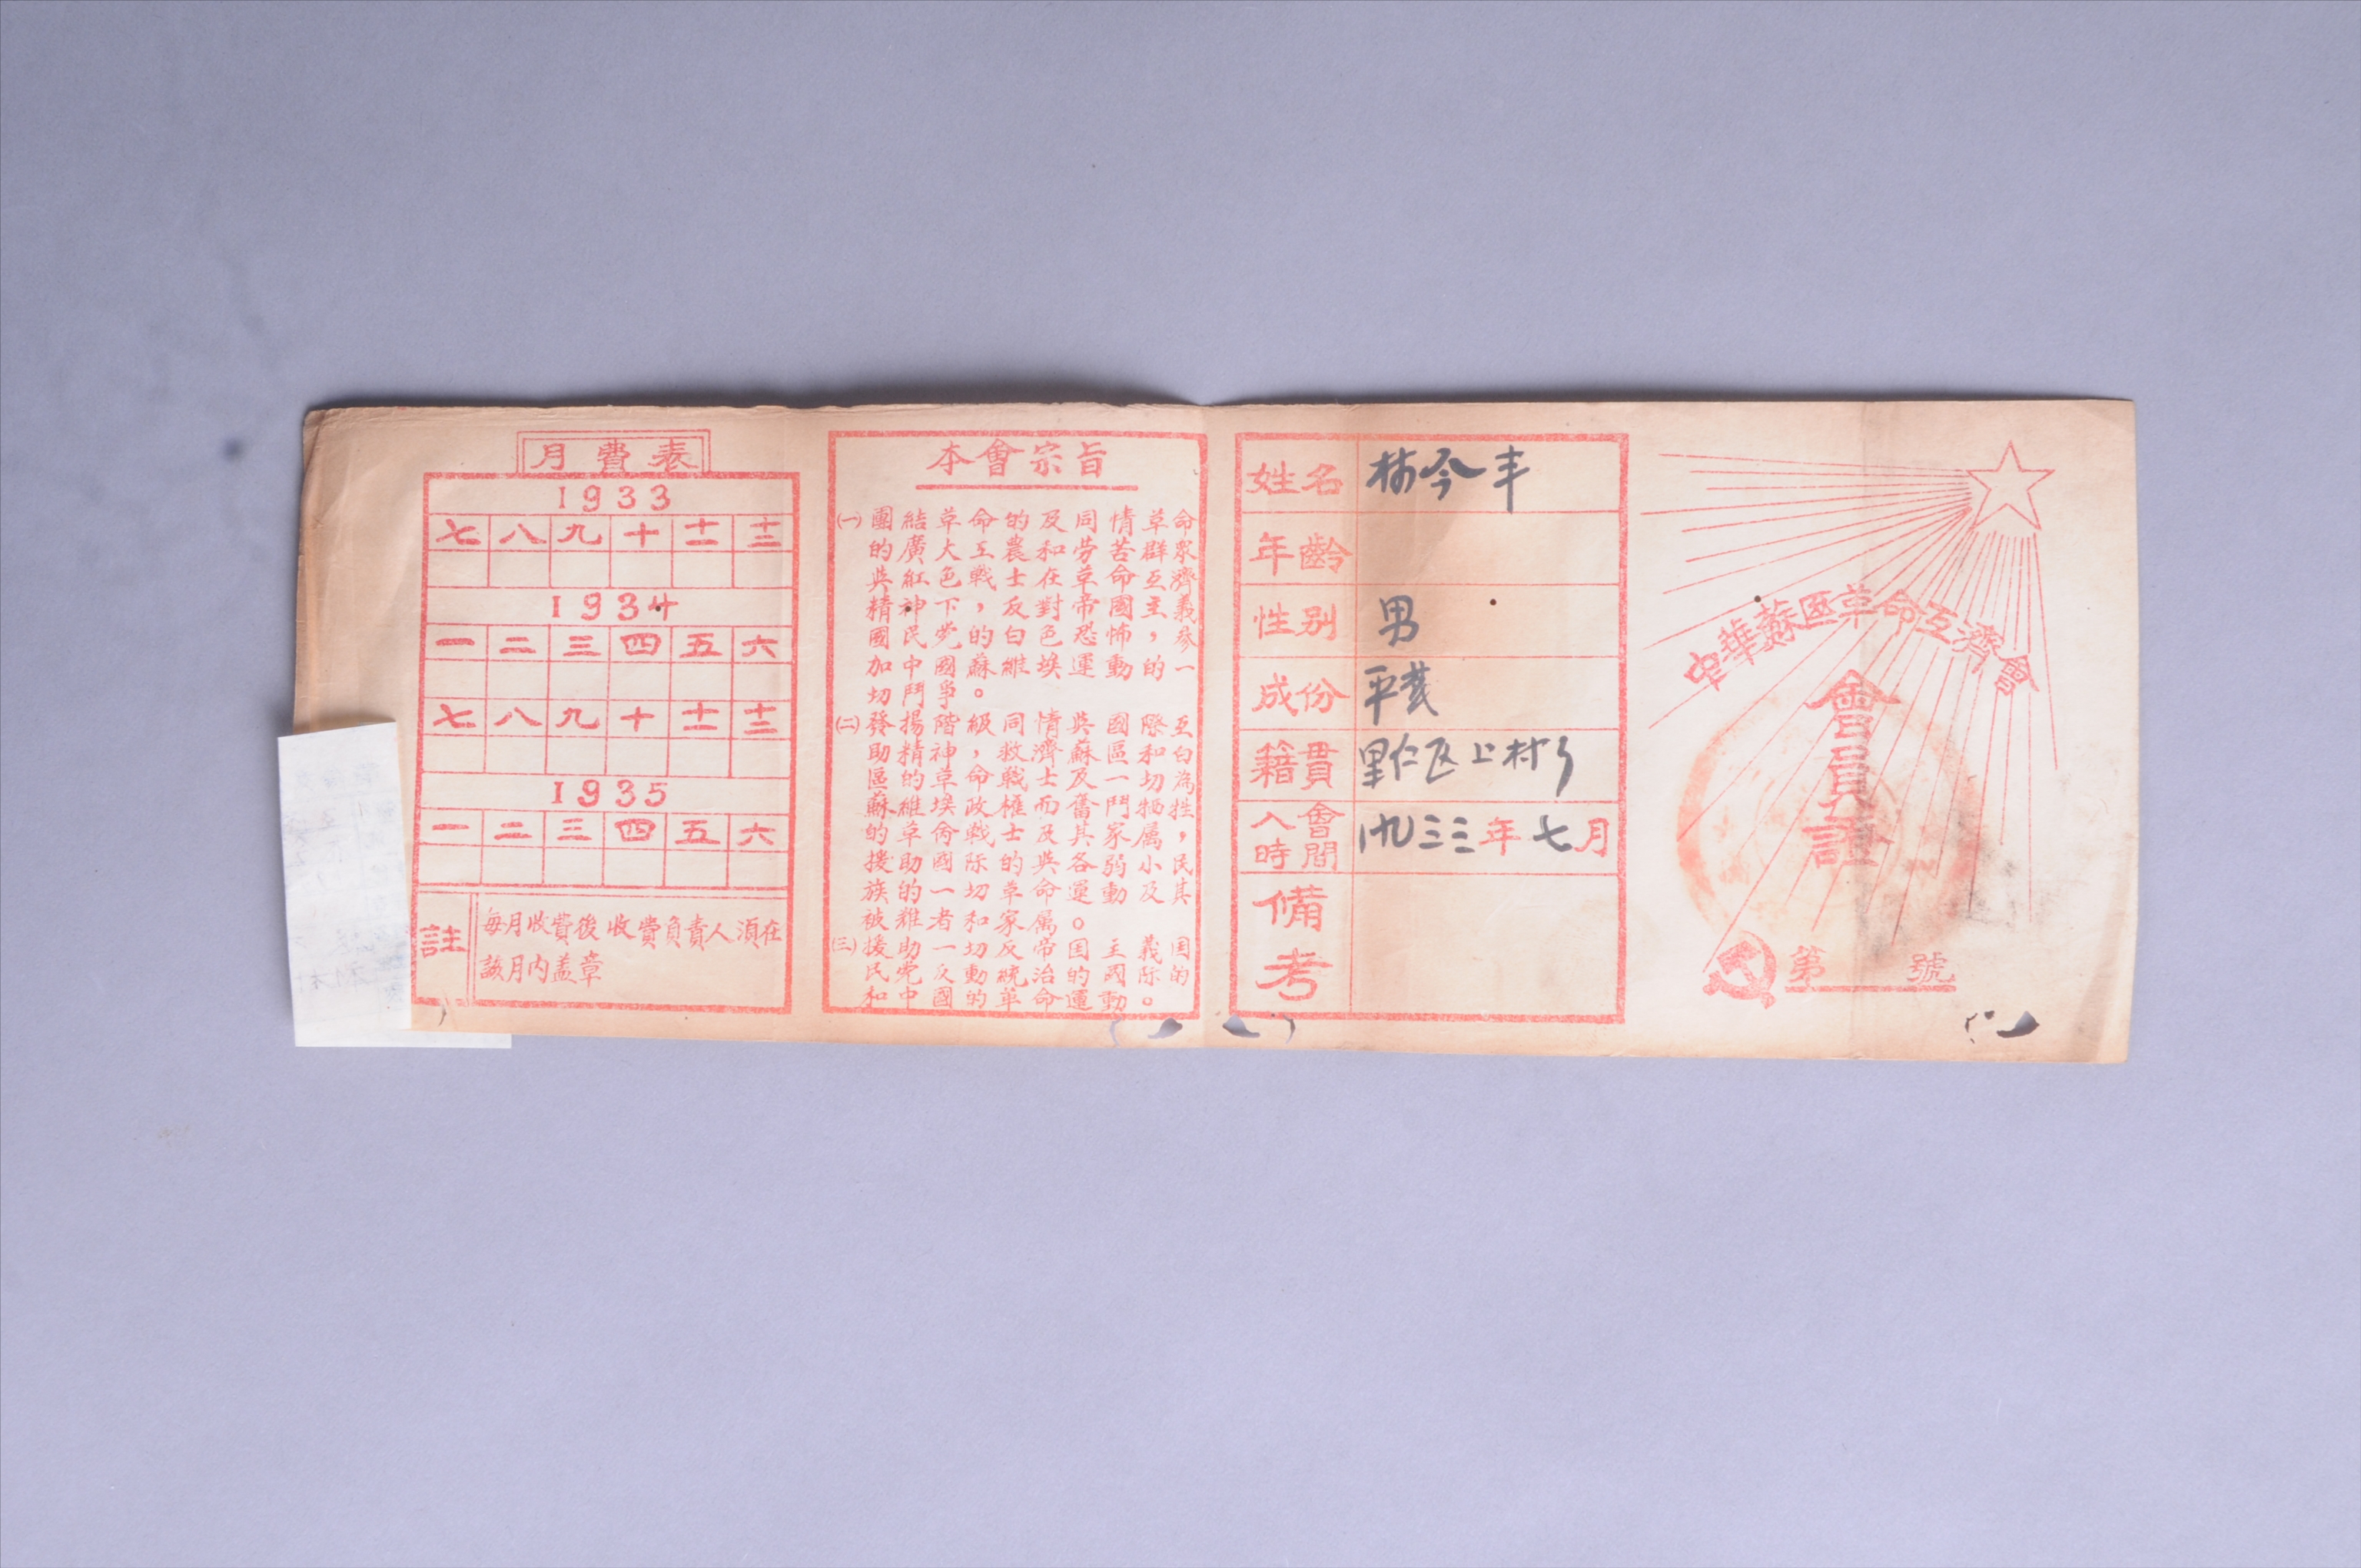 中華蘇區革命互濟會
會員證
第 號
姓名 今丰
年齡
性别 男
成份
籍貫 里仁区上村乡
入會時間 一九三三年七月
備考
本會宗旨
(一) 團結革命的及同情革命
的廣大工農和勞苦群眾
與紅色戰士在革命互濟
精神下,反對帝國主義
國民党的白色恐怖,參
加中國蘇維埃運動的一
切鬥爭。
(二) 發揚階級同情與國際互
助精神,救濟蘇區和白
區的革命戰士及一切為
蘇維埃政權而奮鬥牺牲
的革命战士及其家属,
援助國际的與各弱小民
族的一切革命運動及其
被难者和家属。
(三) 援助一切反帝国主義国
民党反動統治的國际的
和中國的革命運動。
月費表
1933
七 八 九 十 十一 十二
1934
一 二 三 四 五 六
七 八 九 十 十一 十二
1935
一 二 三 四 五 六
註 每月收費後收費負責人須在
該月内盖章